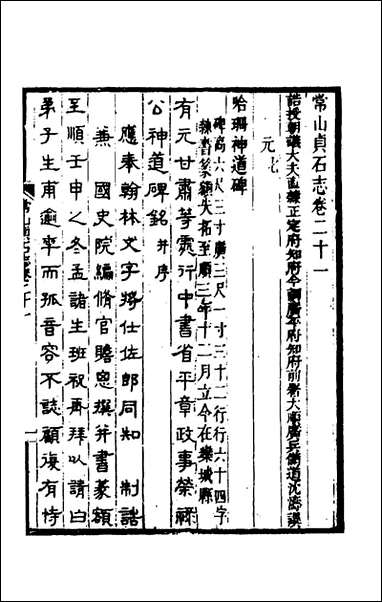 常山貞石志卷二十一
誥授朝議大夫直隸正定府知府今調廣平府知府前署大順廣兵備道沈濤譔
元七
哈珊神道碑
碑高六尺三寸廣三尺一寸三十二行行六十四字
隸書篆額失拓至順三年十二月立今在欒城縣
有元甘肅等處行中書省平章政事榮祿
公神道碑銘 并序
應奉翰林文字將仕佐郎同知 制誥
兼 國史院編脩官瞻思撰并書篆額
至順壬申之冬孟諸生班祝再拜以請白
弟子生甫逾卒而孤音容不誌顧復有恃
常山貞石志卷二十一
一